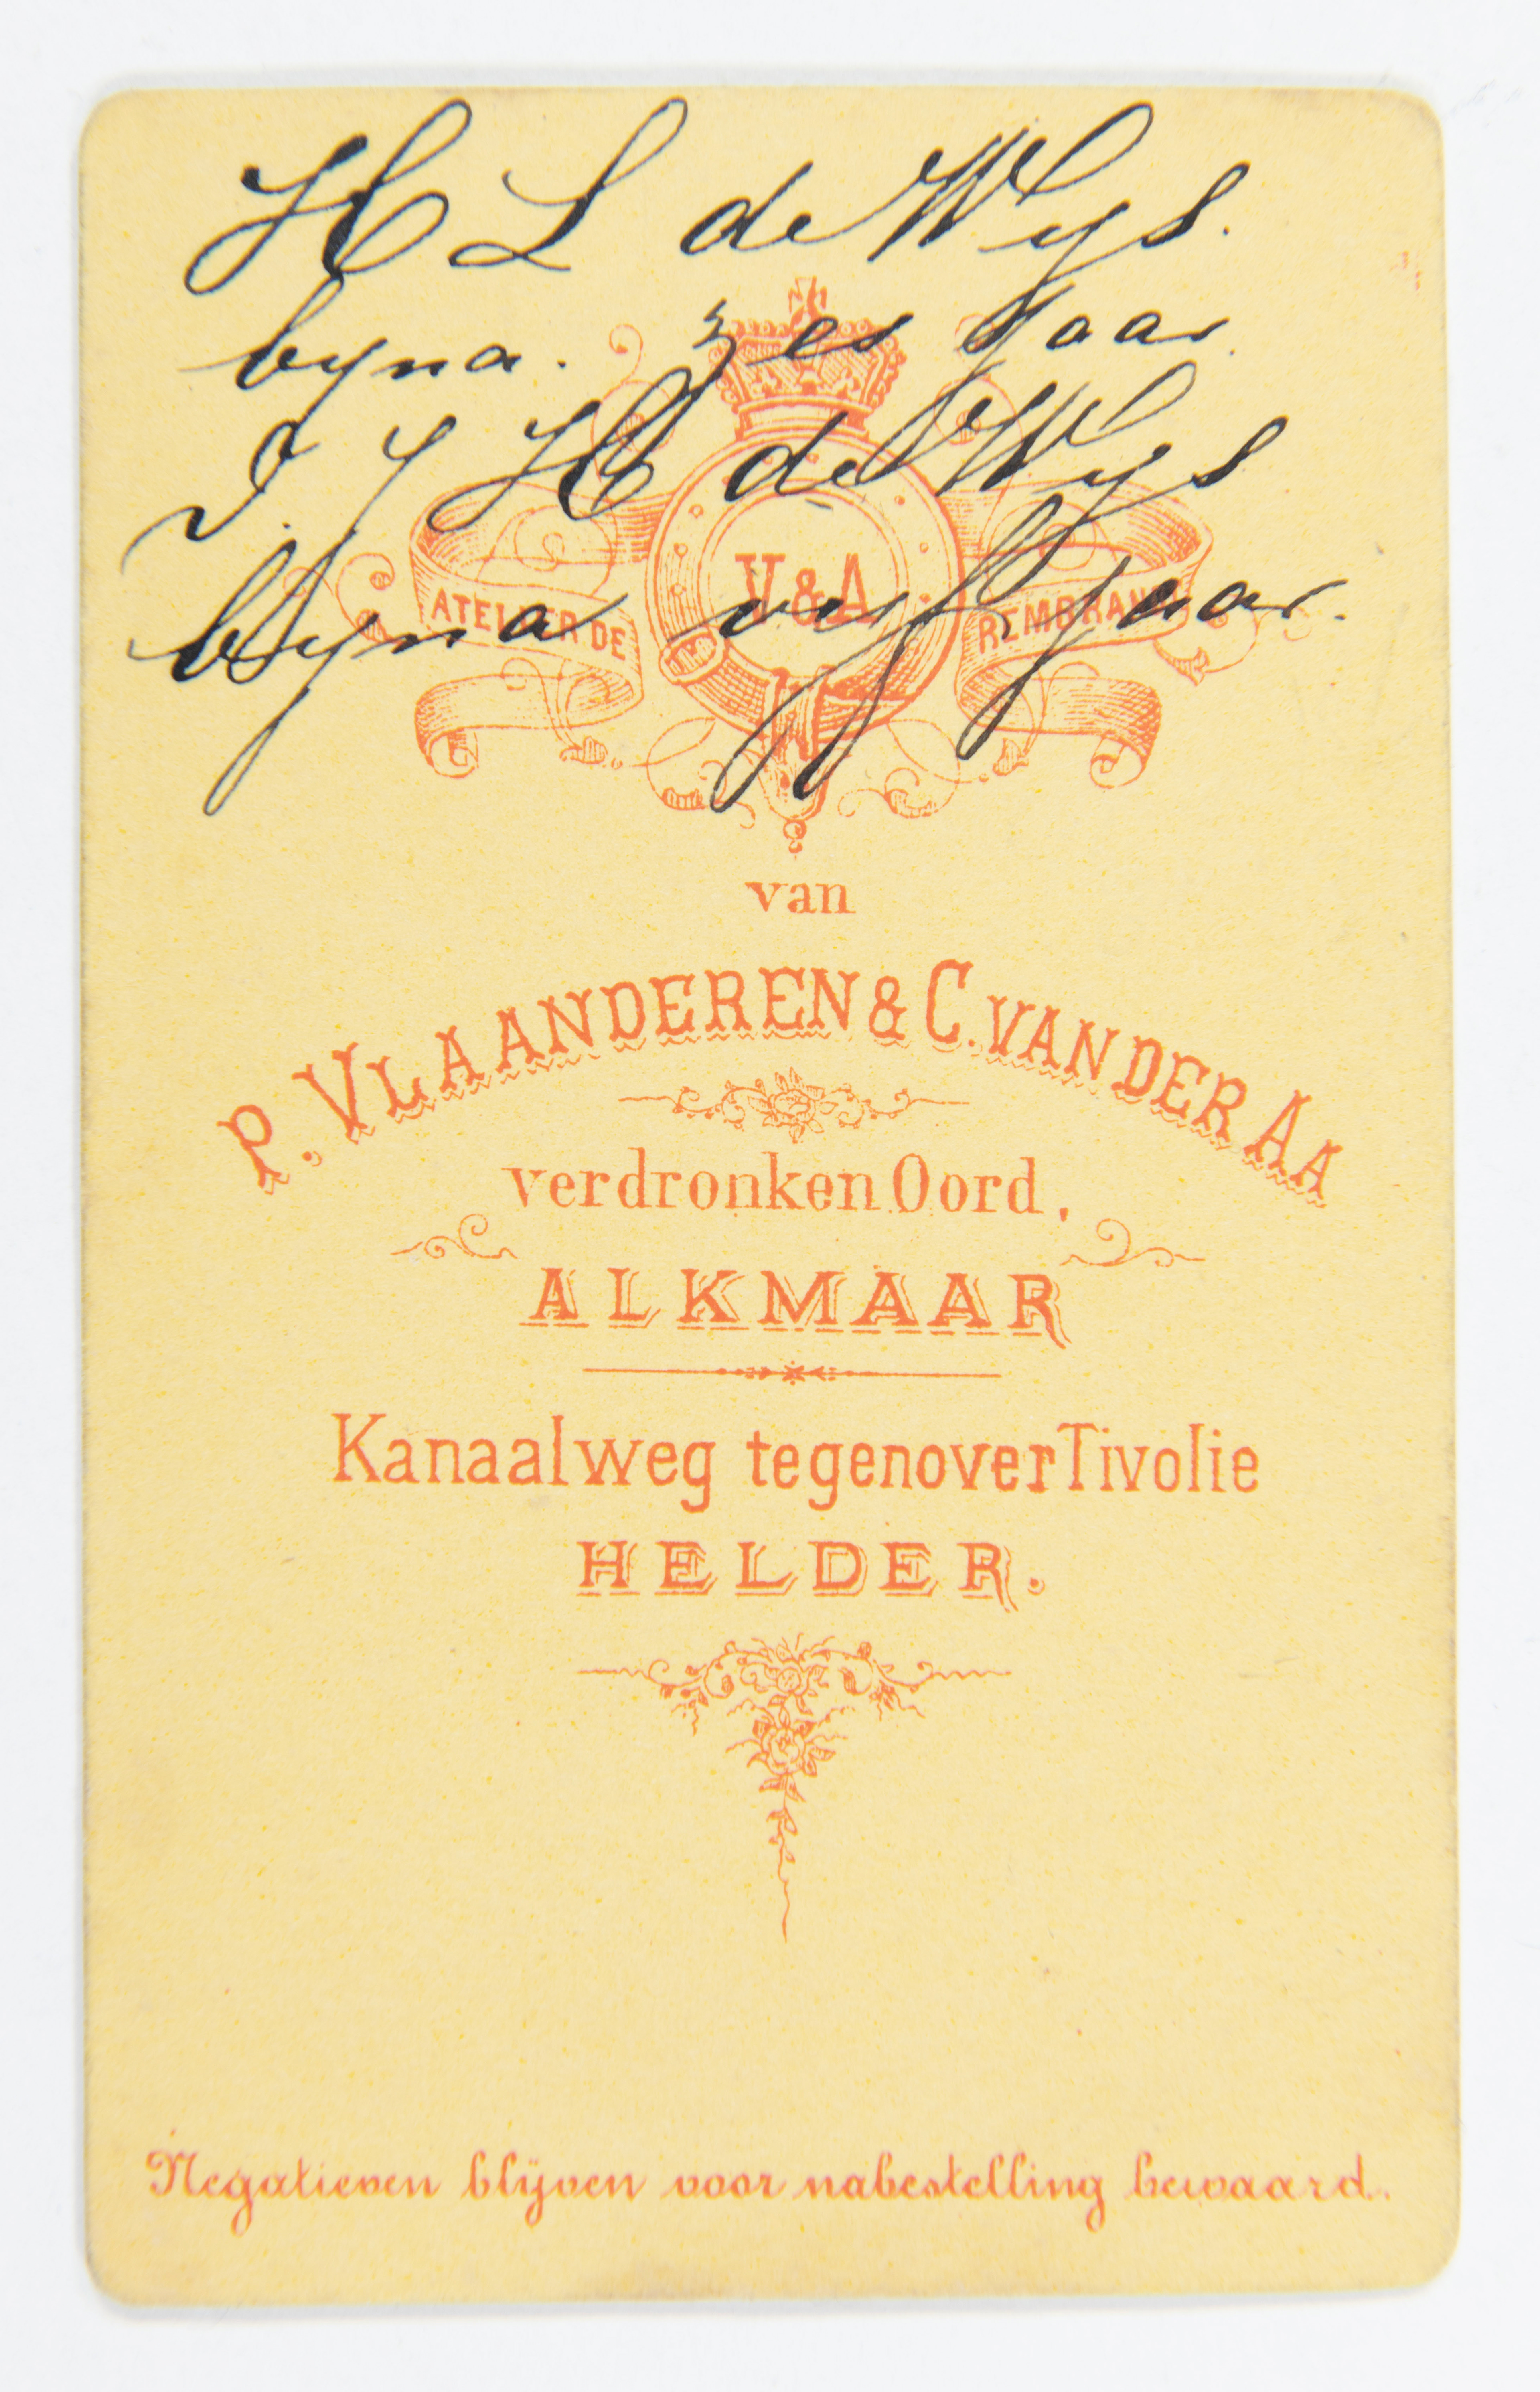 H L de Wys.
byna. zes Jaar.
J. J H de Wys
byna vyf jaar.
V & A
ATELIER DE REMBRANDT
van
P. VLAANDEREN & C. VAN DER AA
verdronken Oord,
ALKMAAR
Kanaalweg tegenover Tivolie
HELDER.
Negatieven blijven voor nabestelling bewaard.